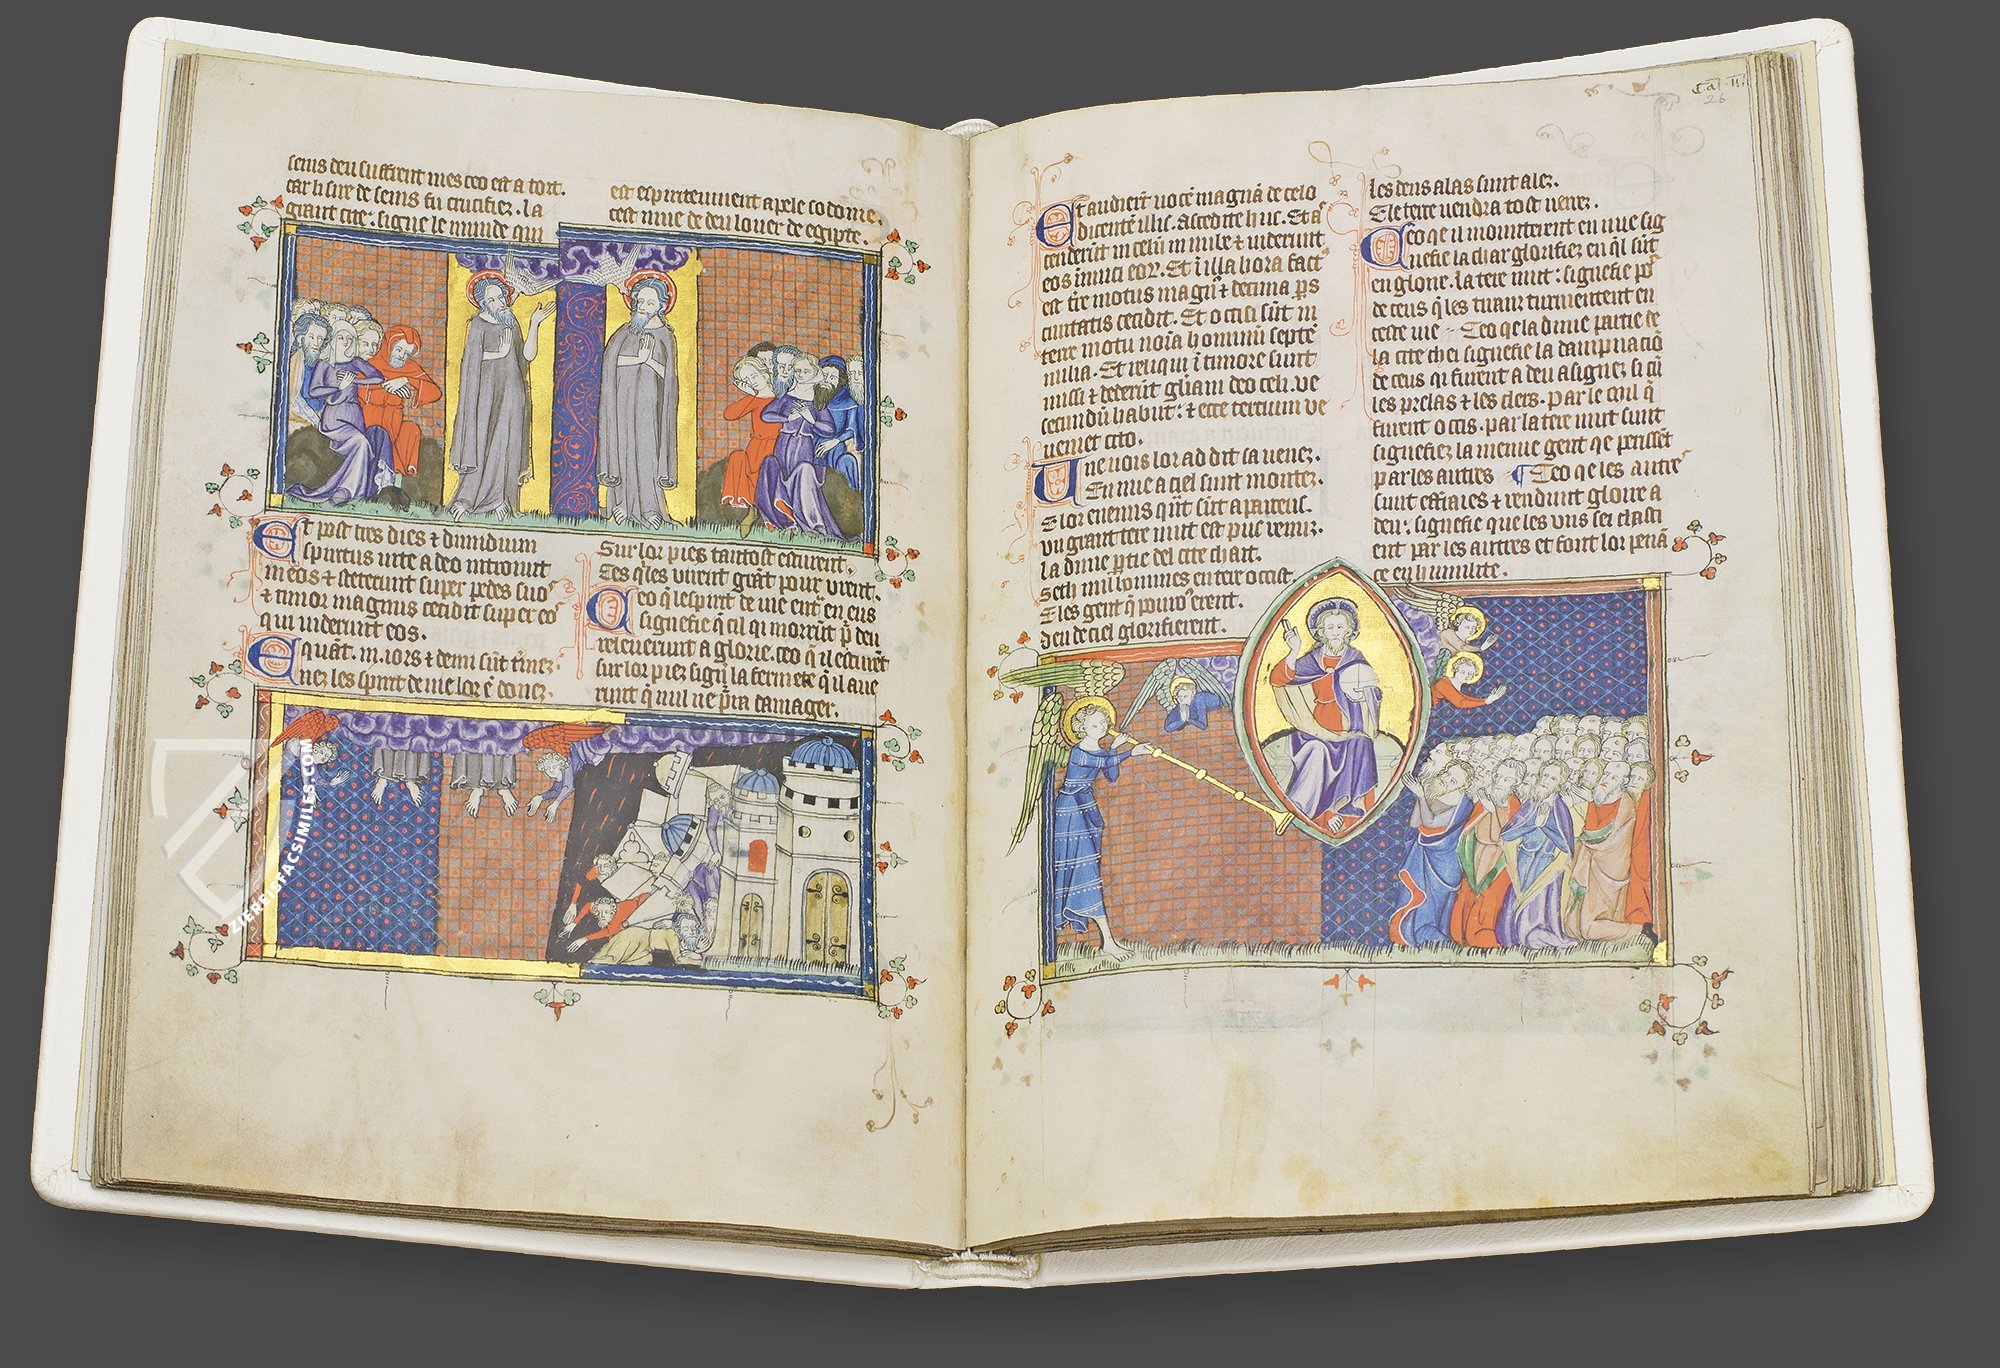 seins deu suffrent mes ceo est a tort.
car li sire de seins fu crucifiez. la
grant cite: signe le munde qui
est espiritement apele sodome.
cest mue de deu louer de egipte.
Et post tres dies & dimidium
spiritus uite a deo introiuit
in eos & steterunt super pedes suos
& timor magnus cecidit super eos
qui uiderunt eos.
E quāt .iii. iors & demi sūt
nez les spirit de uie lor ē donez.
Sur lor piez tantost esturent.
Ces q̄ les virent grāt pour vrent.
Ceo q̄ lespirit de uie entř en eus
signefie q̄ cil qi morrūt p̄ deu
releuerunt a glorie. ceo q̄ il esturēt
sur lor piez signi la fermete q̄ il aue
runt q̄ nul ne p̄ra damager.
ZIEREISFACSIMILES.COM
Cal. III
26
Et audierūt uocē magnā de celo
dicentē illis. ascendite huc. Et as
cenderūt in celū in nube & uiderunt
eos inimici eoꝝ. Et ī illa hora factꝰ
est tre motus magnꝰ & decima ps
ciuitatis cecidit. Et occisi sūt in
terre motu noīa hominū septē
milia. Et reliqui ī timore sunt
missi & dederūt glīam deo celi. ve
secundū habiit: & ecce tertium ve
ueniet cito.
Une uois lor ad dit sa uenez.
En nue a ciel sunt montez.
E lor enemis qūt sūt aparceus.
vn grant tere mut est puis uenuz.
la dime ptie del cite chart.
Seth mil hommes en tere occist.
E les gent q̄ pouroꝰ erent.
deu de ciel glorifierent.
les deus alas sunt alez.
E le terce uendra tost uenez.
Ceo qe il mounterent en nue sig
nefie la char glorifiez en q̄l sūt
en glorie. la tere mut: signefie
de ceus q̄ les tuanz turmentent en
ceste uie Ceo qe la dime partie de
la cite chei signefie la dampnaciō
de ceus qi furent a deu asignez si cū
les prelas & les clers. par le coil q̄
furent occis. par la tere mut sunt
signefiez la menue gent qe perissēt
par les autres ¶ Ceo qe les autres
sunt effraies & rendunt glorie a
deu: signefie que les vns sei chasti
ent par les autres et font lor penā
ce en humilite.